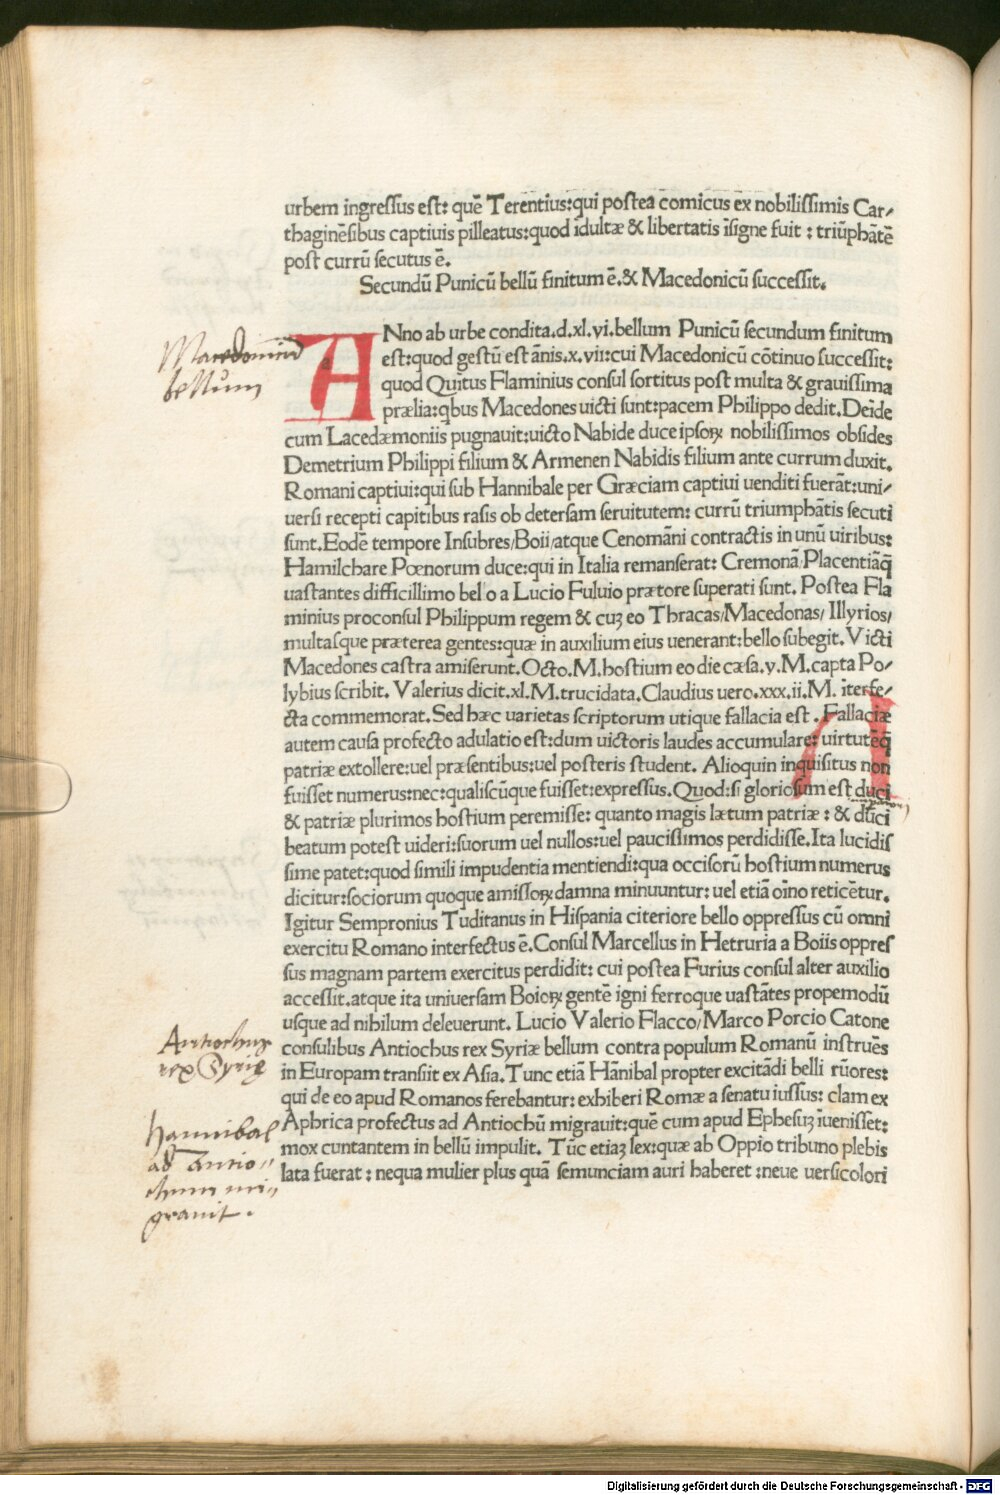 urbem ingreſſus eſt: quē Terentius: qui poſtea comicus ex nobiliſſimis Car/
thaginēſibus captiuis pilleatus: quod īdultæ & libertatis īſigne fuit : triūphātē
poſt currū ſecutus ē.
Secundū Punicū bellū finitum ē. & Macedonicū ſucceſſit.
Macedonicū
bellum
ANno ab urbe condita. d. xl. vi. bellum Punicū ſecundum finitum
eſt: quod geſtū eſt ānis. x. vii: cui Macedonicū cōtinuo ſucceſſit:
quod Quītus Flaminius conſul ſortitus poſt multa & grauiſſima
prælia: qbus Macedones uicti ſunt: pacem Philippo dedit. Deīde
cum Lacedæmoniis pugnauit: uicto Nabide duce ipſoꝝ nobiliſſimos obſides
Demetrium Philippi filium & Armenen Nabidis filium ante currum duxit.
Romani captiui: qui ſub Hannibale per Græciam captiui uenditi fuerāt: uni/
uerſi recepti capitibus raſis ob deterſam ſeruitutem: currū triumphātis ſecuti
ſunt. Eodē tempore Inſubres/ Boii/ atque Cenomāni contractis in unū uiribus:
Hamilchare Pœnorum duce: qui in Italia remanſerat: Cremonā/ Placentiāq̄
uaſtantes difficillimo bello a Lucio Fuluio prætore ſuperati ſunt. Poſtea Fla
minius proconſul Philippum regem & cuꝫ eo Thracas/ Macedonas/ Illyrios/
multaſque præterea gentes: quæ in auxilium eius uenerant: bello ſubegit. Victi
Macedones caſtra amiſerunt. Octo. M. hoſtium eo die cæſa. v. M. capta Po/
lybius ſcribit. Valerius dicit. xl. M. trucidata. Claudius uero. xxx. ii. M. īterfe/
cta commemorat. Sed hæc uarietas ſcriptorum utique fallacia eſt . Fallaciæ
autem cauſa profecto adulatio eſt: dum uictoris laudes accumulare: uirtutēq̄
patriæ extollere: uel præſentibus: uel poſteris ſtudent. Alioquin inquiſitus non
fuiſſet numerus: nec: qualiſcūque fuiſſet: expreſſus. Quod: ſi glorioſum eſt duci
& patriæ plurimos hoſtium peremiſſe: quanto magis lætum patriæ : & duci
beatum poteſt uideri: ſuorum uel nullos: uel pauciſſimos perdidiſſe. Ita lucidiſ
ſime patet: quod ſimili impudentia mentiendi: qua occiſorū hoſtium numerus
dicitur: ſociorum quoque amiſſoꝝ damna minuuntur: uel etiā oīno reticētur.
Igitur Sempronius Tuditanus in Hiſpania citeriore bello oppreſſus cū omni
exercitu Romano interfectus ē. Conſul Marcellus in Hetruria a Boiis oppreſ
ſus magnam partem exercitus perdidit: cui poſtea Furius conſul alter auxilio
acceſſit. atque ita uniuerſam Boioꝝ gentē igni ferroque uaſtātes propemodū
uſque ad nibilum deleuerunt. Lucio Valerio Flacco/ Marco Porcio Catone
Antiochus
rex Syrię
conſulibus Antiochus rex Syriæ bellum contra populum Romanū inſtruēs
in Europam tranſiit ex Aſia. Tunc etiā Hānibal propter excitādi belli rūores:
qui de eo apud Romanos ferebantur: exhiberi Romæ a ſenatu iuſſus: clam ex
Hannibal
ad Antio//
chum mi//
grauit.
Aphrica profectus ad Antiochū migrauit: quē cum apud Epheſuꝫ īueniſſet:
mox cuntantem in bellū impulit. Tūc etiaꝫ lex: quæ ab Oppio tribuno plebis
lata fuerat : nequa mulier plus quā ſemunciam auri haberet : neue uerſicolori
Digitalisierung gefördert durch die Deutsche Forschungsgemeinschaft - DFG